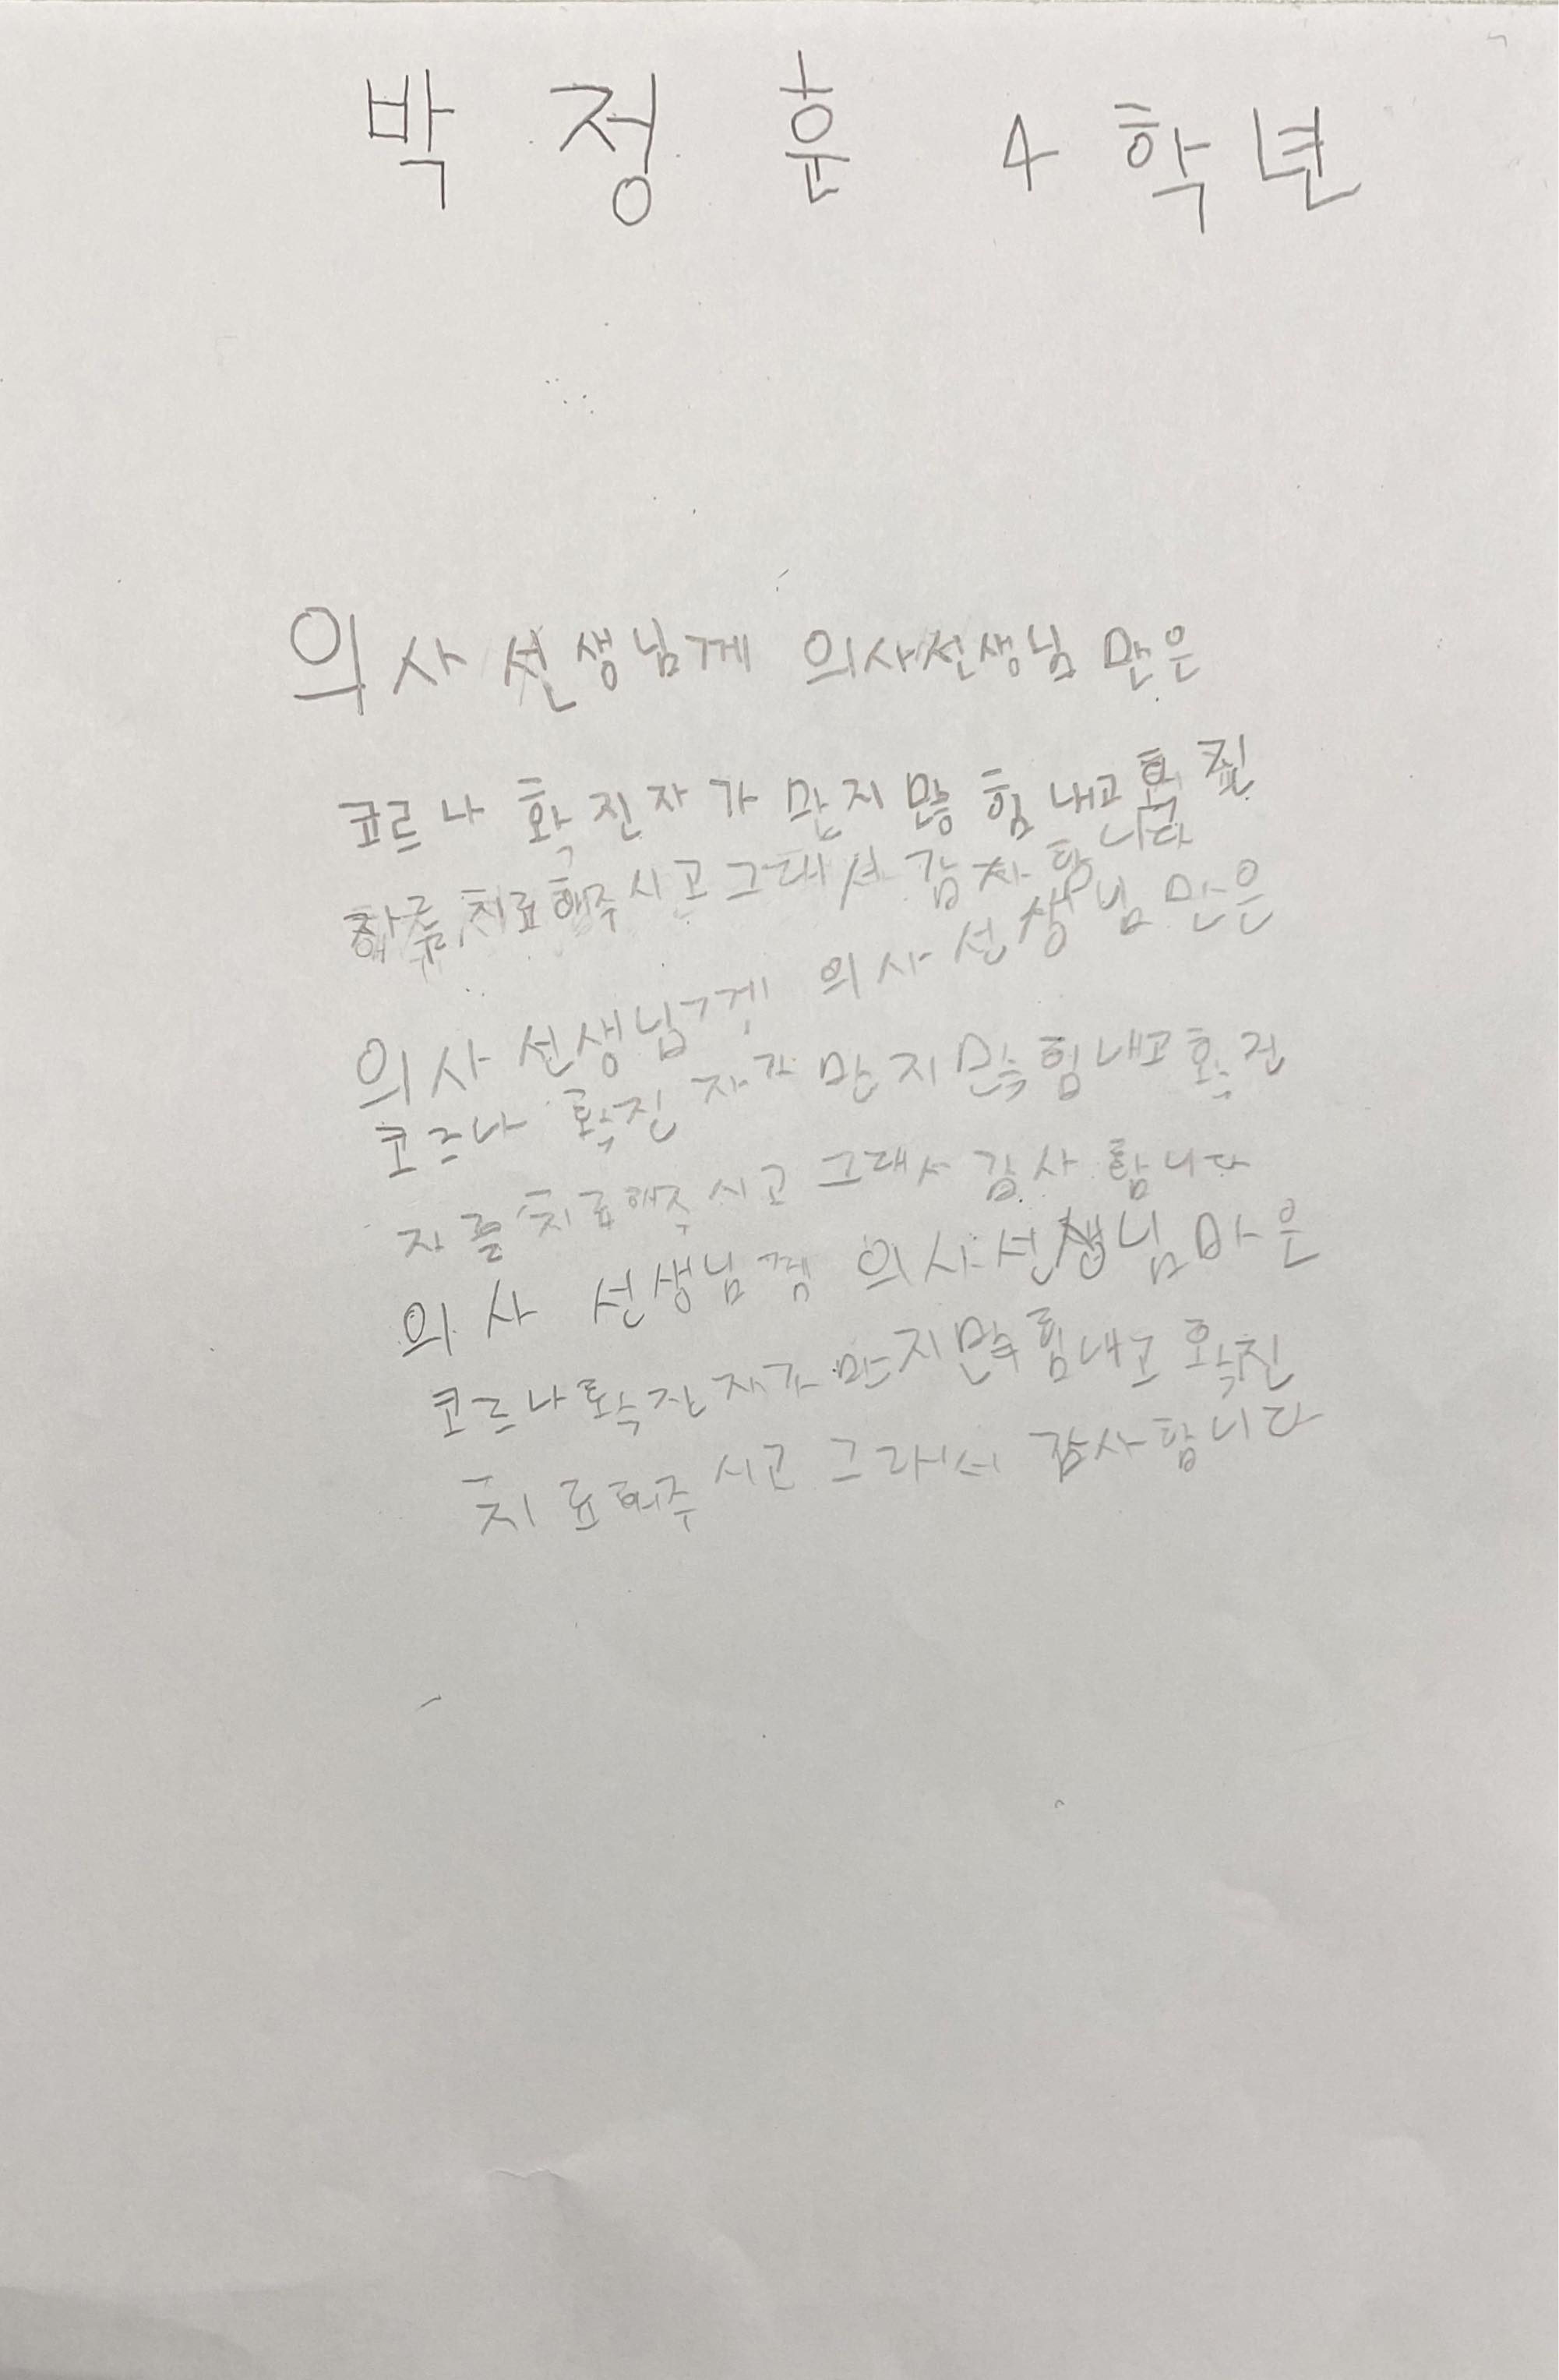 박정훈 4학년
의사 선생님께 의사선생님 만은
코르나 확진자가 만지많 힘내고 확진
자를 치료해주시고 그래서 감사합니다
의사 선생님께 의사 선생님 만은
코르나 확진자가 만지만 힘내고 확진
자를 치료해주시고 그래서 감사합니다
의사 선생님께 의사선생님 마은
코르나 확진자가 만지만 힘내고 확진
치료해주시고 그래서 감사합니다